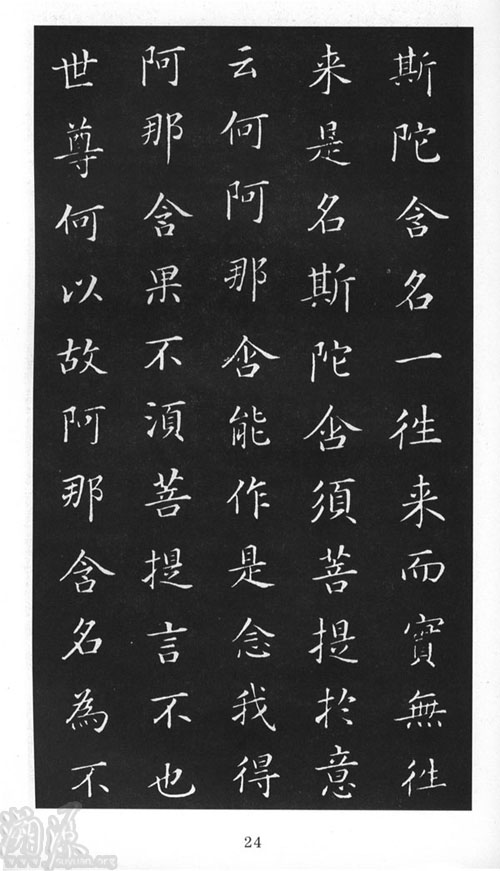 斯陀含名一徃来而寳無徃
来是名斯陀含須菩提於意
云何阿那含能作是念我得
阿那含果不湏菩提言不也
世尊何以故阿那含名為不
24
溯源
www.suyuan.org